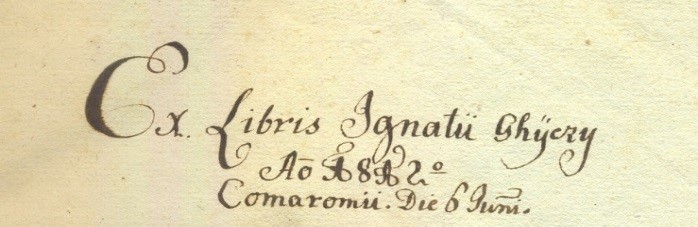 Ex Libris Ignatii Ghÿczy
Aō 1812º
Comaromii. Die 6 Juni.